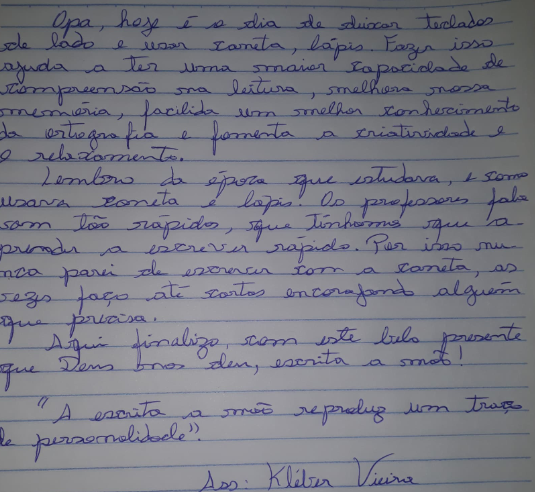 Opa, hoje é o dia de deixar teclados
de lado e usar caneta, lápis. Fazer isso
ajuda a ter uma maior capacidade de
compreensão na leitura, melhora nossa
memória, facilida um melhor conhecimento
da ortografia e fomenta a criatividade e
o relaxamento.
Lembro da época que estudava, e como
usava caneta e lápis. Os professores fala
vam tão rápidos, que tínhamos que a-
prender a escrever rápido. Por isso nu
nca parei de escrever com a caneta, as
vezes faço até cartas encorajando alguém
que precisa.
Aqui finalizo, com este belo presente
que Deus nos deu, escrita a mão!
"A escrita a mão reproduz um traço
de personalidade".
Ass: Kléber Vieira